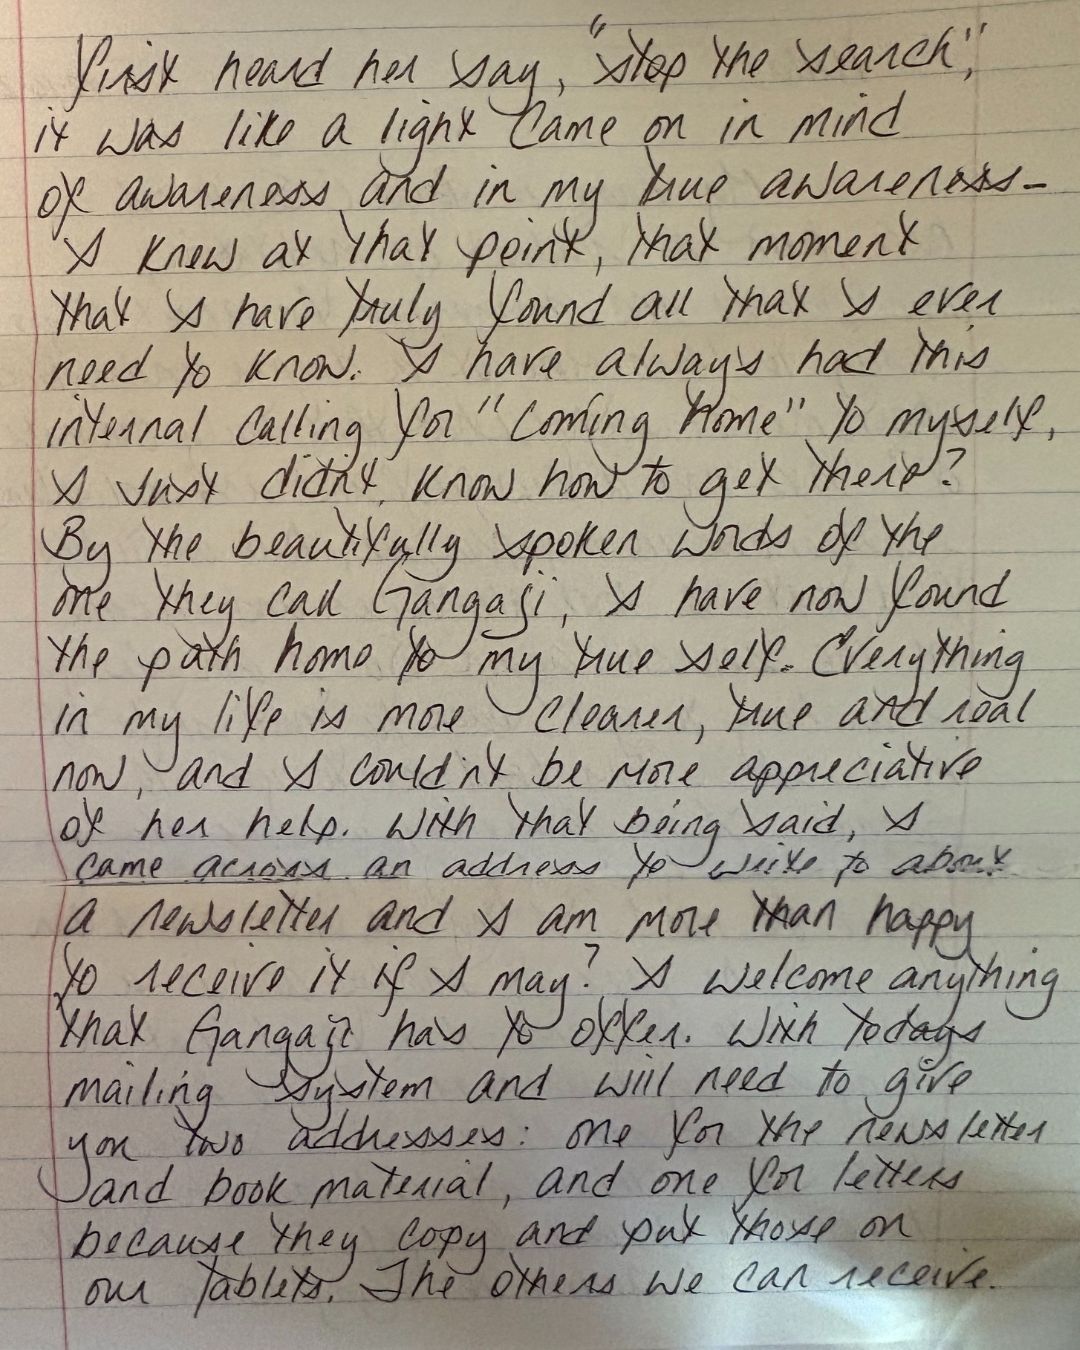 first heard her say, "stop the search",
it was like a light came on in mind
of awareness and in my true awareness-
I knew at that point, that moment
that I have truly found all that I ever
need to know. I have always had this
internal calling for "coming home" to myself,
I just didn't know how to get there?
By the beautifully spoken words of the
one they call Gangaji, I have now found
the path home to my true self. Everything
in my life is more clearer, true and real
now, and I could'nt be more appreciative
of her help. With that being said, I
came across an address to write to about
a newsletter and I am more than happy
to receive it if I may? I welcome anything
that Gangaji has to offer. With todays
mailing system and will need to give
you two addresses: one for the newsletter
and book material, and one for letters
because they copy and put those on
our tablets. The others we can receive.